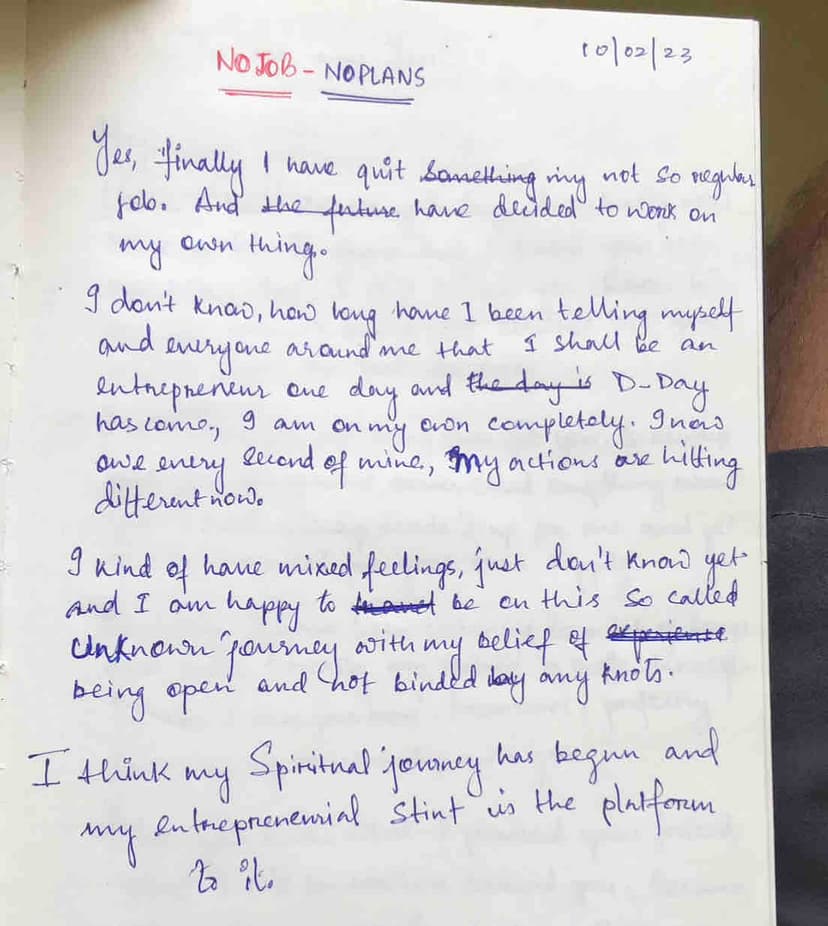 10/02/23
NO JOB - NO PLANS
Yes, finally I have quit something my not so regular
job. And the future have decided to work on
my own thing.
I don't know, how long have I been telling myself
and everyone around me that I shall be an
entrepreneur one day and the day is D-Day
has come., I am on my own completely. I now
owe every second of mine, My actions are hitting
different now.
I kind of have mixed feelings, just don't know yet
and I am happy to travel be on this so called
Unknown journey with my belief of experience
being open and not binded by any knots.
I think my Spiritual journey has begun and
my entrepreneurial stint is the platform
to it.